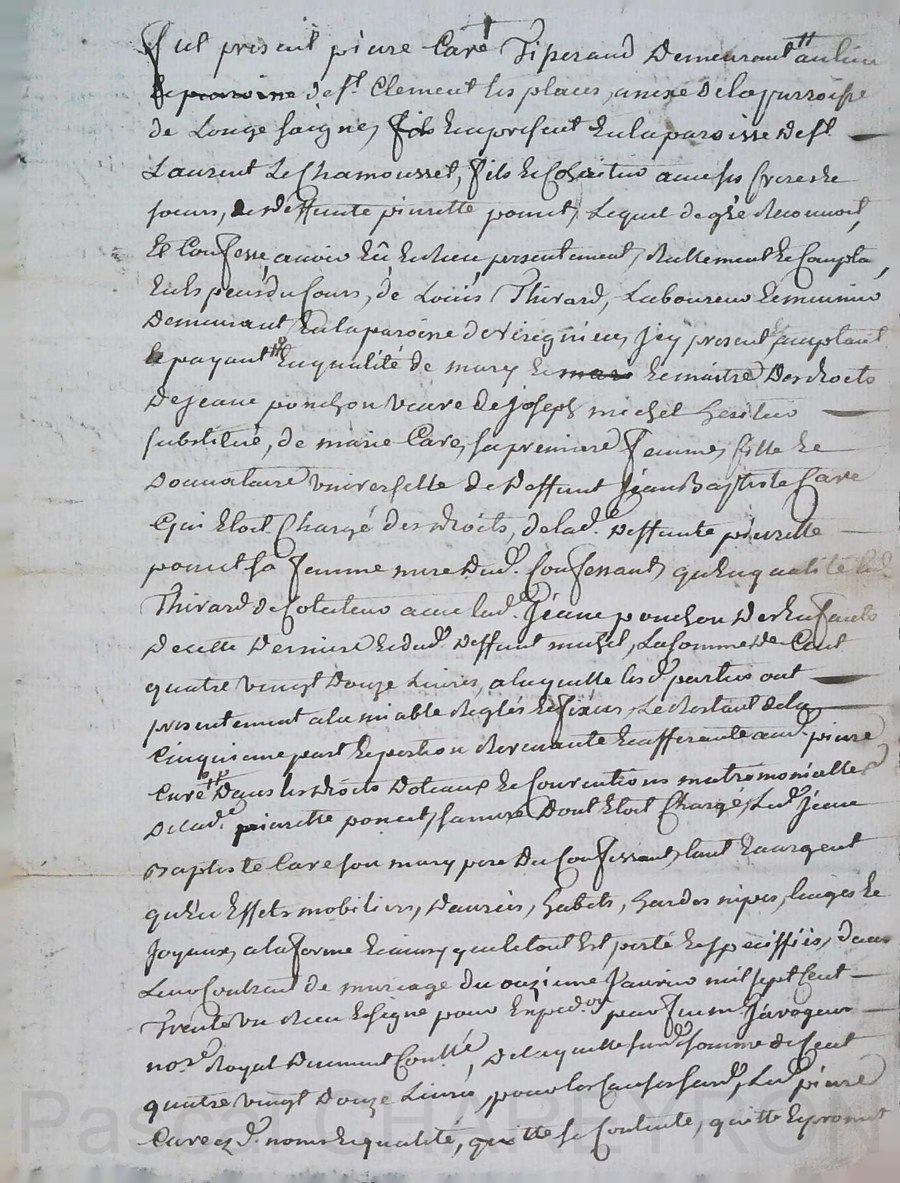 fut present pierre Caré Tisserand Demeurant au lieu
de paroisse de st. Clement les places, annexe de la parroisse
de Longe saigne, fils en present en la paroisse de st.
Laurent de Chamousset, fils et Coheritier avec ses freres et
soeurs, de deffunte pierrette poncet, Lequel de gré Reconnoit,
Et Confesse avoir Eû et Reçu presentement, Reellement et Compta
en Espeus du Cours, de Loüis Thivard, Laboureur et
Demeurant en la paroisse de icy present acceptant
et payant En qualité de mary et mar et maistre Des droits
De jeane ponchon veuve de joseph michel heritier
substitué, de marie Care, sa premiere femme, fille et
Donnataire universelle de Deffunt jean Baptiste Care
Qui Etoit Chargé des droits, de lad. Deffunte pierrette
poncet sa femme mere dud. Confessant, qu'en qualité lud.
Thivard de Cotuteur avec lad. jeane ponchon Des Enfants
De cette Derniere et dud. Deffunt michel, La somme De Cent
quatre vingt Douze Livres, a laquelle lesd. parties ont
presentement a lamiable Reglés et fixés, Le Restant de la
Cinquieme part et portion Revenante et afferente aud. pierre
Caré Dans les droits Dotaux et Conventions matrimonialles
De lad. pierrette poncet, sa mere Dont Etoit Chargé, Led. jean
Baptiste Care son mary pere Du Confessant, tant en argent
qu'en Effets mobiliers, Danrées, habits, hardes nipes, linges et
joyaux, a la forme et ainsy que le tout Est porté et speciffiés, dans
Leur Contract de mariage du onzieme janvier mil sept Cent
Trente un Reçu et signé pour Exped.on par javogues
nore. Royal Duement Contllé, De laquelle susd. somme de Cent
quatre vingt Douze Livres, pour les Causes susd., Led. pierre
Care ez d. noms et qualité, quitte se Contente, quitte Et promet
Pascal CHAREYRON